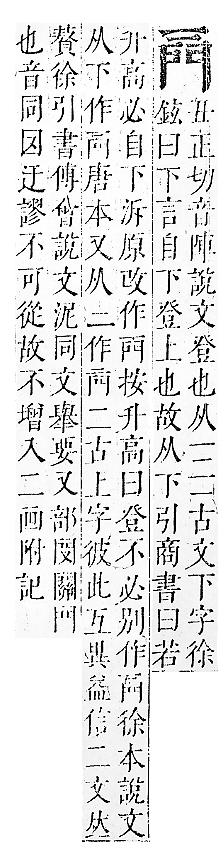 丑正切音陣說文登也从二二古文下字徐
鉉曰下言自下登上也故从下引商書曰若
升高必自下泝原改作按升高曰登不必別作徐本說文
从下作唐本又从二作二古上字彼此互異益信二文𠀤
贅徐引書傅會說文泥同文舉要又部閔關
也音同迂謬不可從故不增入二画附記